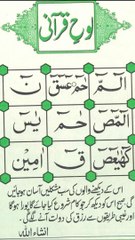 لوح قرآنی
الٓمّٓ حٰمٓ عٓسٓقٓ نٓ
الٓمّٓصٓ حٰمٓ یٰسٓ
کٓھٰیٰعٓصٓ قٓ اٰمِین
اس کے دیکھنے والوں کی سب مشکلیں آسان ہو جائیں
گی صبح اس کو دیکھ کر جو کام شروع کیا جائے گا پورا ہو گا
اور غیبی طریقوں سے رزق کی دولت آنے لگے گی۔
انشاء اللہ